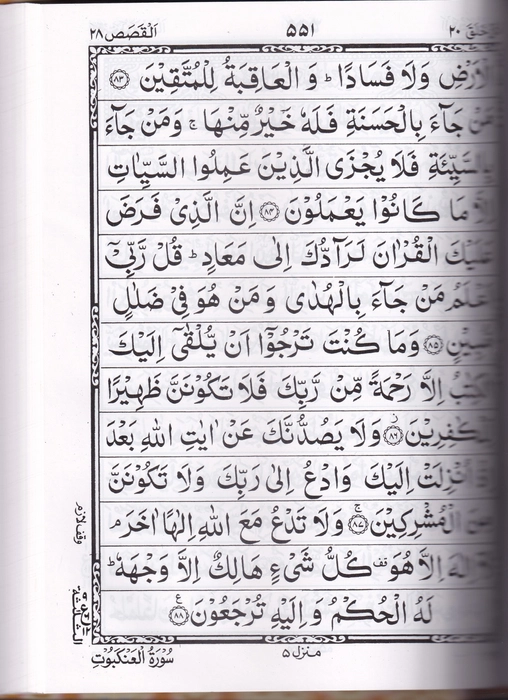 خلق ٢٠ ٥٥١ اَلْقَصَص ٢٨
الْاَرْضِ وَلَا فَسَادًا ؕ وَ الْعَاقِبَةُ لِلْمُتَّقِيْنَ ﴿٨٣﴾
مَنْ جَآءَ بِالْحَسَنَةِ فَلَهٗ خَيْرٌ مِّنْهَا ۚ وَمَنْ جَآءَ
بِالسَّيِّئَةِ فَلَا يُجْزَى الَّذِيْنَ عَمِلُوا السَّيِّاٰتِ
اِلَّا مَا كَانُوْا يَعْمَلُوْنَ ﴿٨٤﴾ اِنَّ الَّذِيْ فَرَضَ
عَلَيْكَ الْقُرْاٰنَ لَرَآدُّكَ اِلٰى مَعَادٍ ؕ قُلْ رَّبِّيْٓ
اَعْلَمُ مَنْ جَآءَ بِالْهُدٰى وَ مَنْ هُوَ فِيْ ضَلٰلٍ
مُّبِيْنٍ ﴿٨٥﴾ وَمَا كُنْتَ تَرْجُوْٓا اَنْ يُّلْقٰٓى اِلَيْكَ
الْكِتٰبُ اِلَّا رَحْمَةً مِّنْ رَّبِّكَ فَلَا تَكُوْنَنَّ ظَهِيْرًا
لِّلْكٰفِرِيْنَ ﴿٨٦﴾ وَلَا يَصُدُّنَّكَ عَنْ اٰيٰتِ اللّٰهِ بَعْدَ
اِذْ اُنْزِلَتْ اِلَيْكَ وَادْعُ اِلٰى رَبِّكَ وَلَا تَكُوْنَنَّ
مِنَ الْمُشْرِكِيْنَ ﴿٨٧﴾ۚ وَلَا تَدْعُ مَعَ اللّٰهِ اِلٰهًا اٰخَرَ ۘ
لَآ اِلٰهَ اِلَّا هُوَ قف كُلُّ شَيْءٍ هَالِكٌ اِلَّا وَجْهَهٗ ؕ
لَهُ الْحُكْمُ وَ اِلَيْهِ تُرْجَعُوْنَ ﴿٨٨﴾ ع
وقف لازم
منزل ٥
سُوْرَةُ الْعَنْكَبُوْتِ